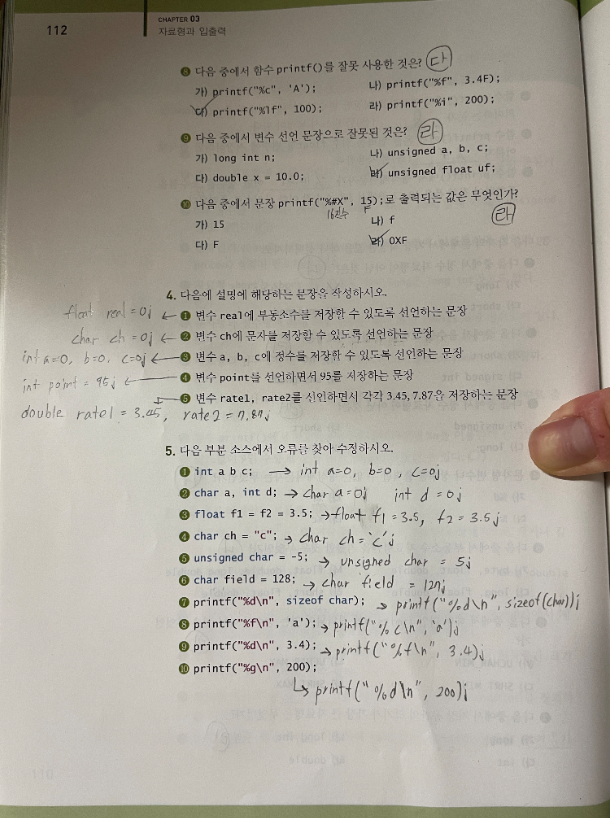 112
CHAPTER 03
자료형과 입출력
8 다음 중에서 함수 printf()를 잘못 사용한 것은? 다
가) printf("%c", 'A'); 나) printf("%f", 3.4F);
다) printf("%lf", 100); 라) printf("%i", 200);
9 다음 중에서 변수 선언 문장으로 잘못된 것은? 라
가) long int n; 나) unsigned a, b, c;
다) double x = 10.0; 라) unsigned float uf;
10 다음 중에서 문장 printf("%#X", 15);로 출력되는 값은 무엇인가? 라
16진수 F
가) 15 나) f
다) F 라) 0XF
4. 다음에 설명에 해당하는 문장을 작성하시오.
float real = 0; ← 1 변수 real에 부동소수를 저장할 수 있도록 선언하는 문장
char ch = 0; ← 2 변수 ch에 문자를 저장할 수 있도록 선언하는 문장
int a=0, b=0, c=0; ← 3 변수 a, b, c에 정수를 저장할 수 있도록 선언하는 문장
int point = 95; ← 4 변수 point를 선언하면서 95를 저장하는 문장
5 변수 rate1, rate2를 선언하면서 각각 3.45, 7.87을 저장하는 문장
double rate1 = 3.45, rate2 = 7.87;
5. 다음 부분 소스에서 오류를 찾아 수정하시오.
1 int a b c; → int a=0, b=0, c=0;
2 char a, int d; → char a = 0; int d = 0;
3 float f1 = f2 = 3.5; → float f1 = 3.5, f2 = 3.5;
4 char ch = "c"; → char ch = 'c';
5 unsigned char = -5; → unsigned char = 5;
6 char field = 128; → char field = 127;
7 printf("%d\n", sizeof char); → printf("%d\n", sizeof(char));
8 printf("%f\n", 'a'); → printf("%c\n", 'a');
9 printf("%d\n", 3.4); → printf("%f\n", 3.4);
10 printf("%g\n", 200);
→ printf("%d\n", 200);